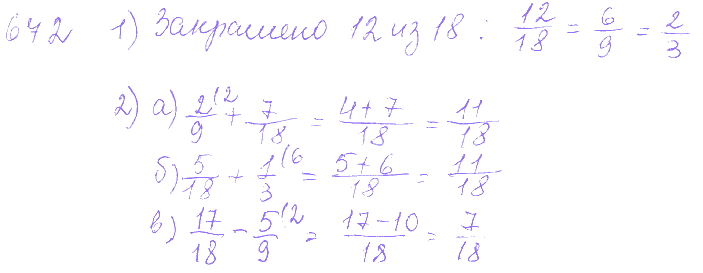 672 1) Закрашено 12 из 18 : 12/18 = 6/9 = 2/3
2) а) 2/9 (2 + 7/18 = 4+7/18 = 11/18
б) 5/18 + 1/3 (6 = 5+6/18 = 11/18
в) 17/18 - 5/9 (2 = 17-10/18 = 7/18